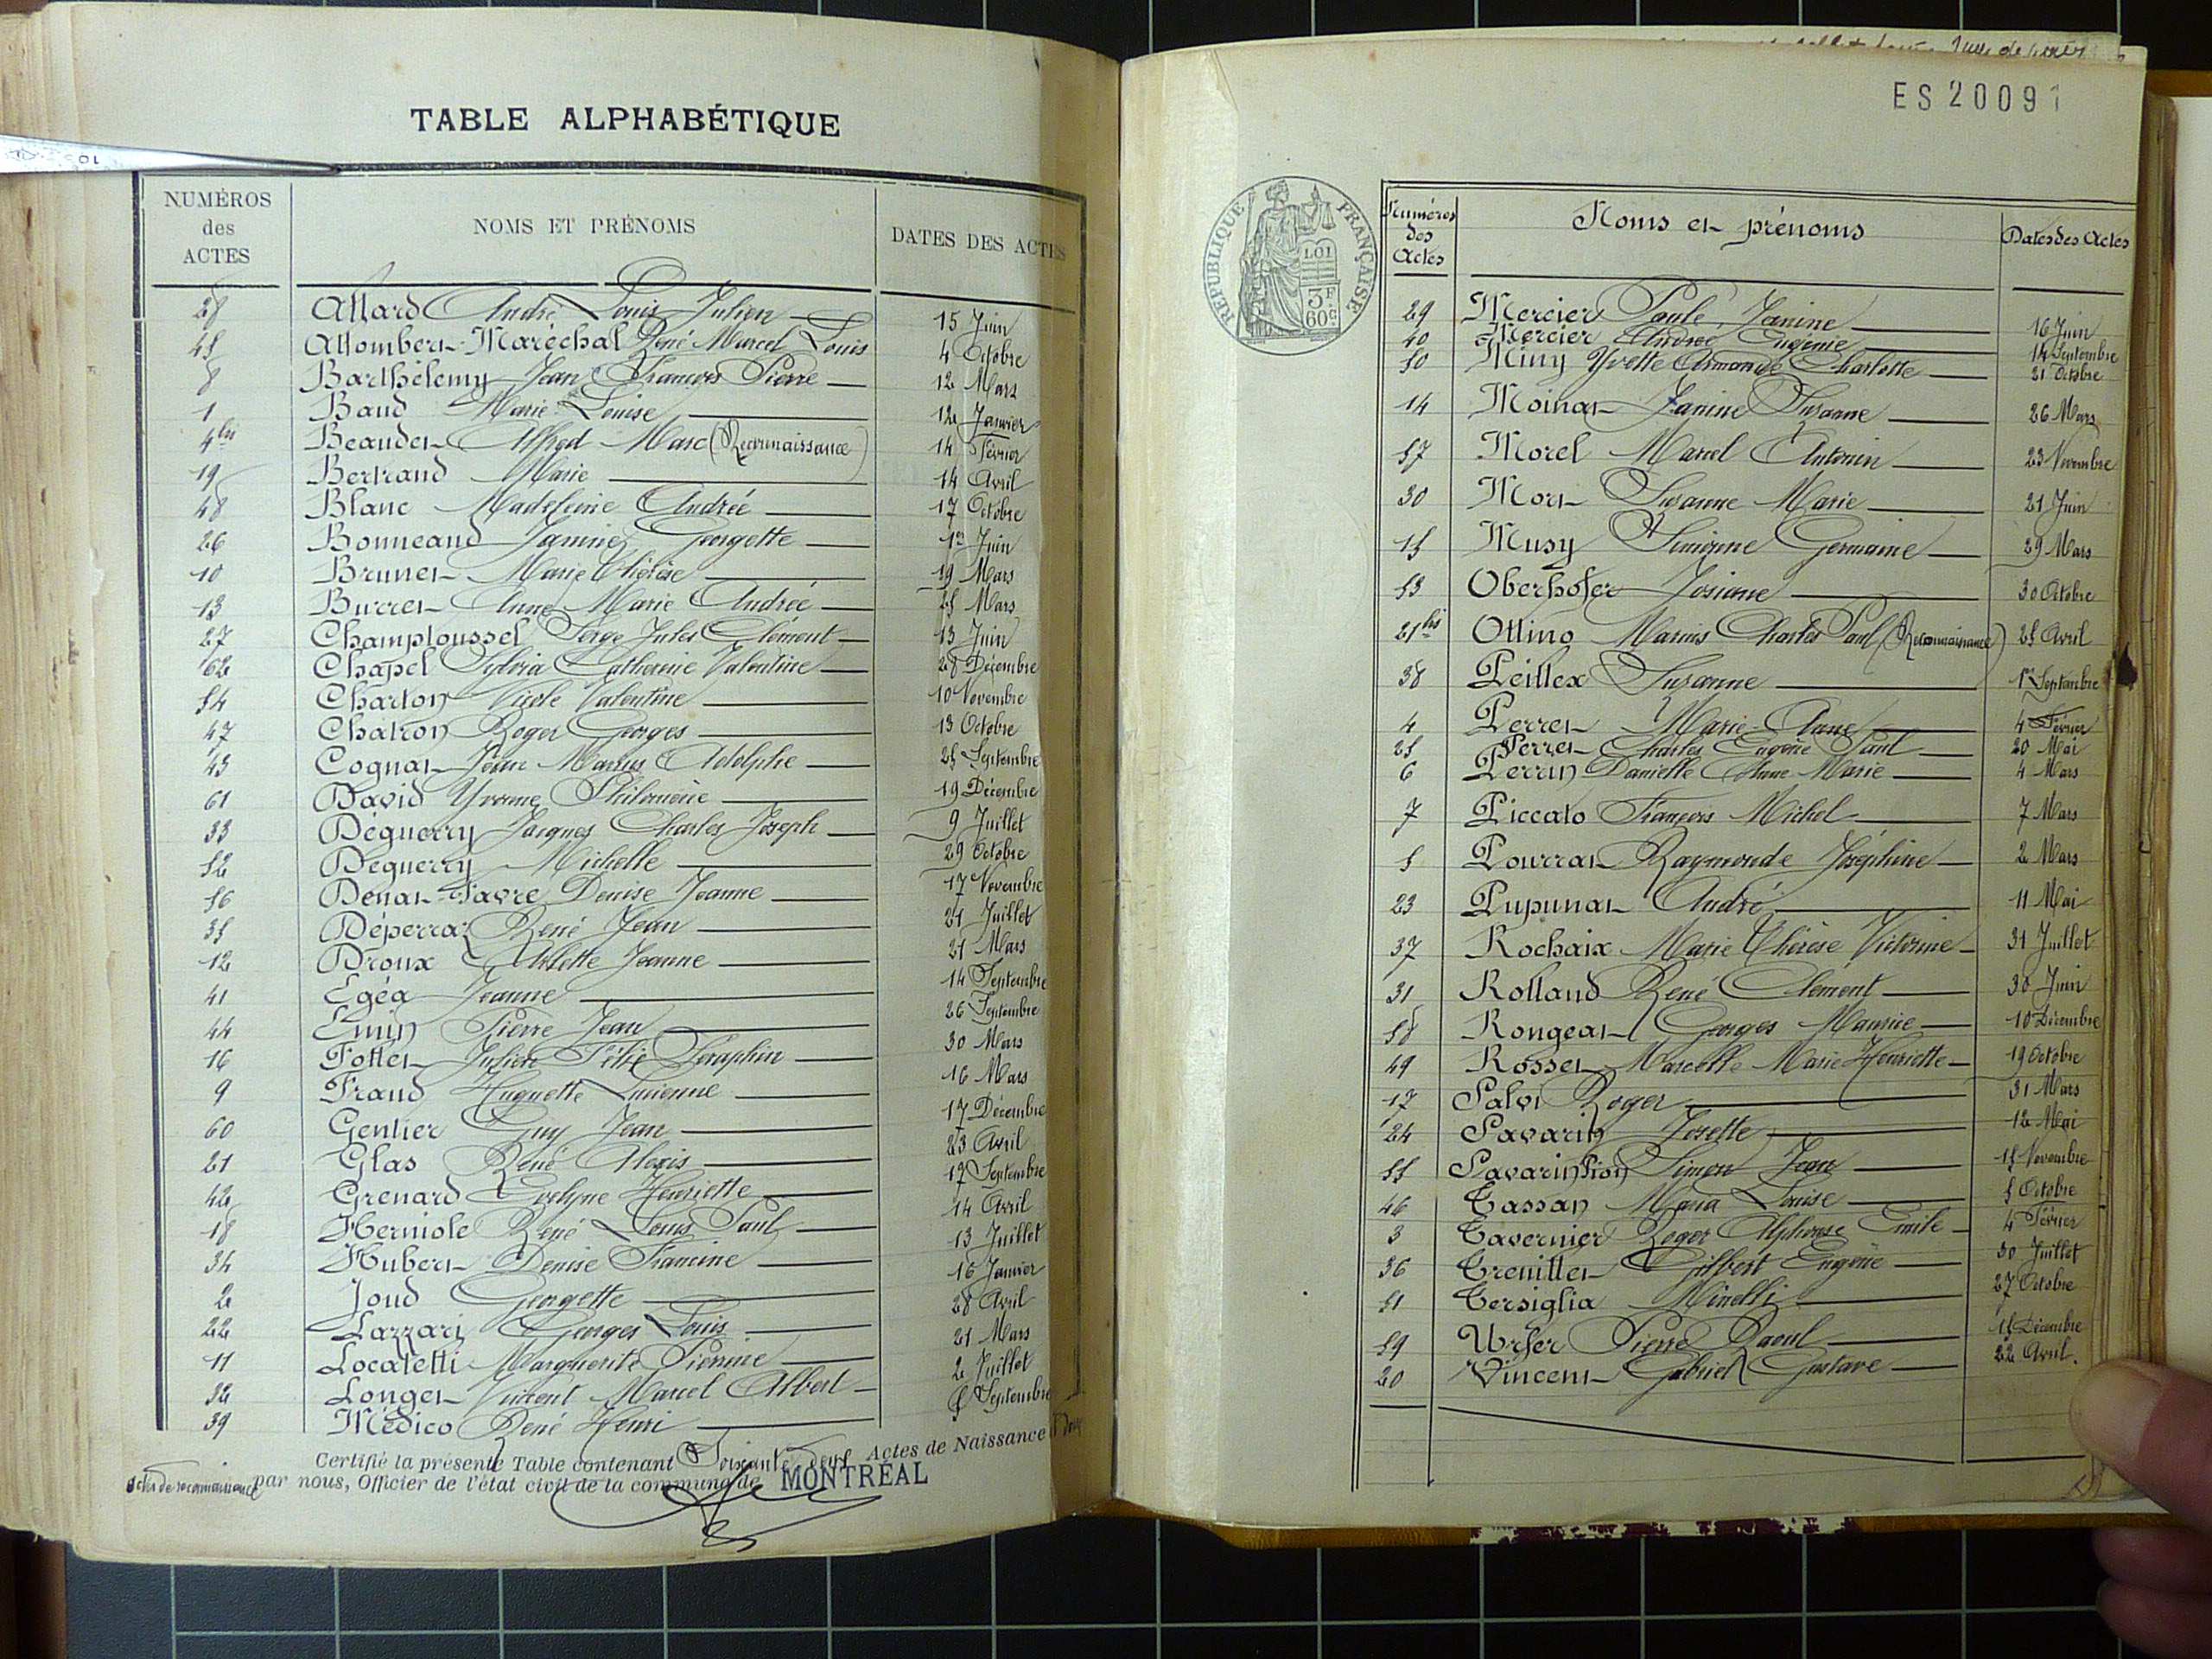 TABLE ALPHABÉTIQUE
NUMÉROS des ACTES
NOMS ET PRÉNOMS
DATES DES ACTES
28 Allard André Louis Julien 15 Juin
45 Allombert-Maréchal René Marcel Louis 4 Octobre
8 Barthélemy Jean François Pierre 12 Mars
1 Baud Marie-Louise 12 Janvier
4bis Beaudet Alfred Marc (Reconnaissance) 14 Février
19 Bertrand Marie 14 Avril
48 Blanc Madeleine Andrée 17 Octobre
26 Bonneaud Janine Georgette 1er Juin
10 Brunet Marie Thérèse 19 Mars
13 Burret Anne Marie Andrée 25 Mars
27 Champloussel Serge Jules Clément 13 Juin
62 Chapel Sylvia Catherine Valentine 28 Décembre
54 Charton Nicole Valentine 10 Novembre
47 Chatron Roger Georges 13 Octobre
43 Cognat Jean Marius Adolphe 25 Septembre
61 David Yvonne Philomène 19 Décembre
33 Déguerry Jacques Charles Joseph 9 Juillet
52 Déguerry Michelle 29 Octobre
56 Denat-Favre Denise Jeanne 17 Novembre
35 Déperraz René Jean 21 Juillet
12 Droux Arlette Jeanne 21 Mars
41 Egéa Jeanne 14 Septembre
44 Emin Pierre Jean 26 Septembre
16 Follet Julien Félix Séraphin 30 Mars
9 Fraud Huguette Lucienne 16 Mars
60 Gentier Guy Jean 17 Décembre
21 Glas René Alexis 23 Avril
42 Grenard Evelyne Henriette 17 Septembre
18 Herniole René Louis Paul 14 Avril
34 Hubert Denise Francine 13 Juillet
2 Joud Georgette 16 Janvier
22 Lazzari Georges Louis 28 Avril
11 Locatelli Marguerite Pierrine 21 Mars
32 Longet Vincent Marcel Albert 2 Juillet
39 Médico René Henri 5 Septembre
Certifié la présente Table contenant Soixante deux Actes de Naissance
actes de reconnaissance par nous, Officier de l'état civil de la commune de MONTRÉAL
ES 20091
RÉPUBLIQUE FRANÇAISE
LOI
3F 60c
Numéros des Actes
Noms et prénoms
Dates des Actes
29 Mercier Paule Janine 16 Juin
40 Mercier Andrée Eugénie 14 Septembre
50 Miny Yvette Armande Charlotte 21 Octobre
14 Moinat Janine Suzanne 26 Mars
57 Morel Marcel Antonin 23 Novembre
30 Mort Suzanne Marie 21 Juin
15 Musy Simonne Germaine 29 Mars
53 Oberhofer Josiane 30 Octobre
21bis Ottino Marius Charles Paul (Reconnaissance) 25 Avril
38 Peillex Suzanne 1er Septembre
4 Perret Marie-Anne 4 Février
25 Perret Charles Eugène Paul 20 Mai
6 Perrin Danielle Anne-Marie 4 Mars
7 Piccato François Michel 7 Mars
5 Pourrat Raymonde Joséphine 2 Mars
23 Pupunat André 11 Mai
37 Rochaix Marie Thérèse Victorine 31 Juillet
31 Rolland René Clément 30 Juin
58 Rongeat Georges Maurice 10 Décembre
49 Rosset Marcelle Marie Henriette 19 Octobre
17 Salvi Roger 31 Mars
24 Savarin Josette 12 Mai
55 Savarin Pion Simon Jean 15 Novembre
46 Tassan Maria Louise 5 Octobre
3 Tavernier Roger Alphonse Emile 4 Février
36 Treuillet Gilbert Eugène 30 Juillet
51 Tersiglia Minelli 27 Octobre
59 Urfer Pierre Raoul 15 Décembre
20 Vincent Gabriel Gustave 22 Avril.